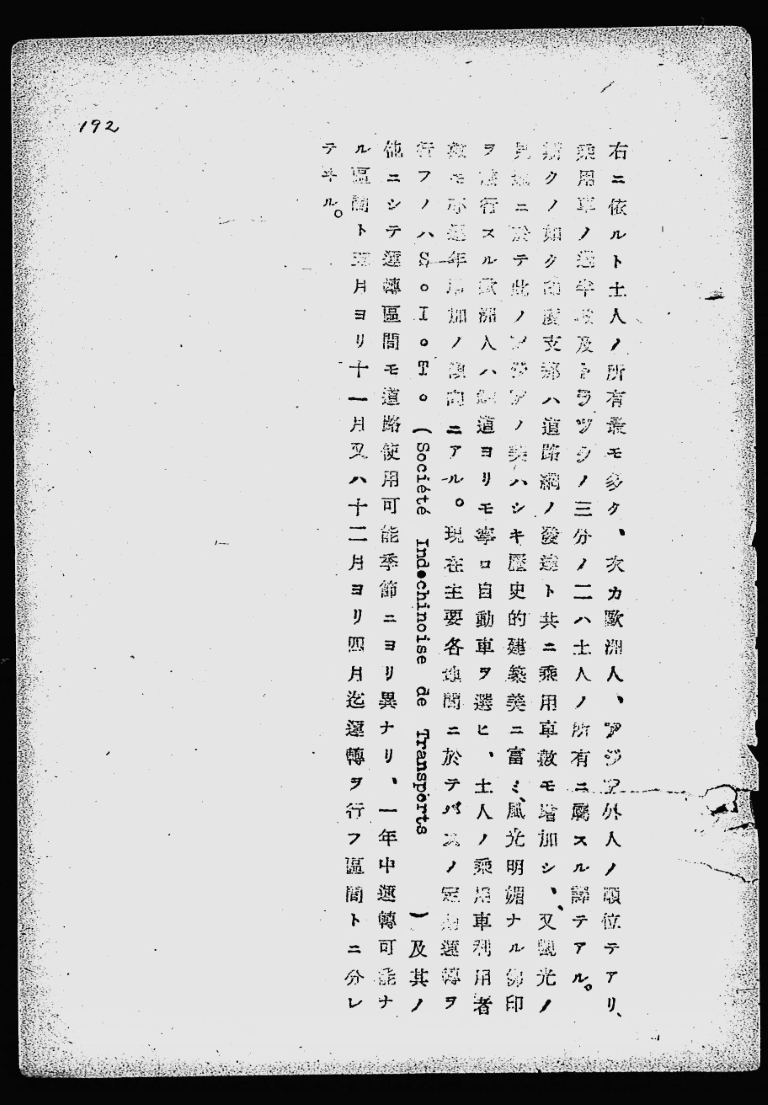 192
右ニ依ルト土人ノ所有最モ多ク、次カ歐洲人、アジア外人ノ順位テアリ、
乘用車ノ過半數及トラツクノ三分ノ二ハ土人ノ所有ニ屬スル譯テアル。
斯クノ如ク印度支那ハ道路網ノ發達ト共ニ乘用車數モ增加シ、又觀光ノ
見地ニ於テ此ノアジアノ美ハシキ歷史的建築美ニ富ミ、風光明媚ナル佛印
ヲ旅行スル歐洲人ハ鐵道ヨリモ寧ロ自動車ヲ選ヒ、土人ノ乘用車利用者
數モ亦逐年增加ノ傾向ニアル。現在主要各地間ニ於テバスノ定期運轉ヲ
行フノハS。I。T。(Société Indochinoise de Transports)及其ノ
他ニシテ運轉區間モ道路使用可能季節ニヨリ異ナリ、一年中運轉可能ナ
ル區間ト五月ヨリ十一月又ハ十二月ヨリ四月迄運轉ヲ行フ區間トニ分レ
テヰル。